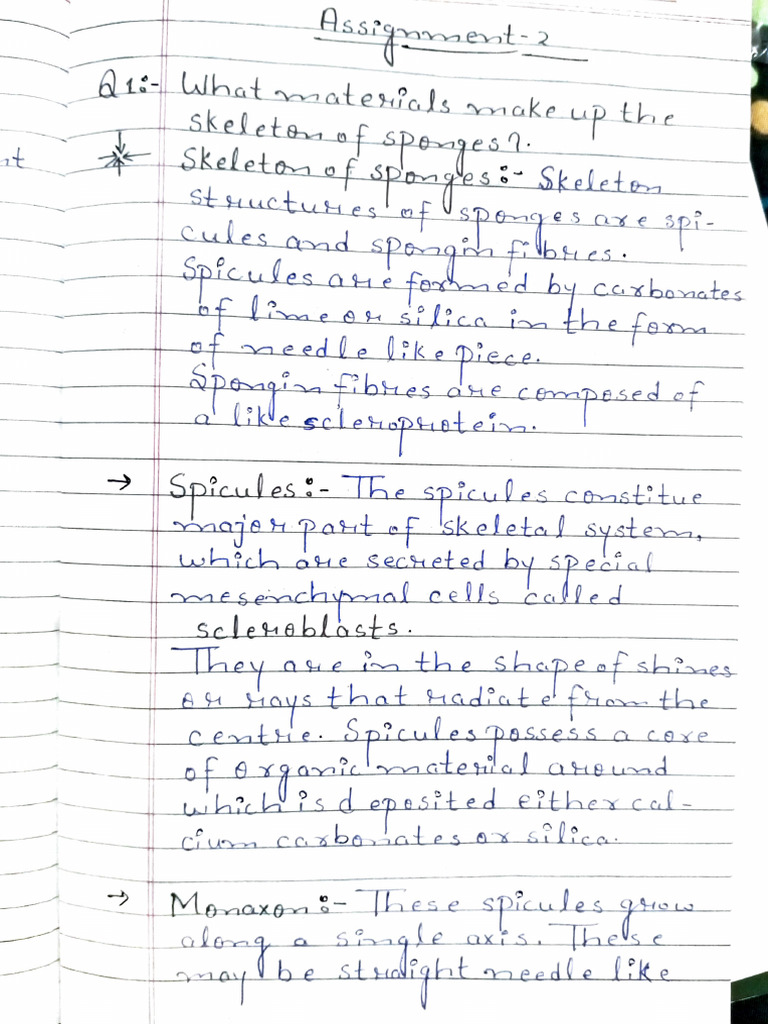 Assignment-2
Q1:- What materials make up the
skeleton of sponges?.
Skeleton of sponges:- Skeleton
structures of sponges are spi-
cules and spongin fibres.
Spicules are formed by carbonates
of lime or silica in the form
of needle like piece.
Spongin fibres are composed of
a like scleroprotein.
→ Spicules:- The spicules constitue
major part of skeletal system,
which are secreted by special
mesenchymal cells called
scleroblasts.
They are in the shape of shines
or rays that radiate from the
centre. Spicules possess a core
of organic material around
which is deposited either cal-
cium carbonates or silica.
→ Monaxon:- These spicules grow
along a single axis. These
may be straight needle like